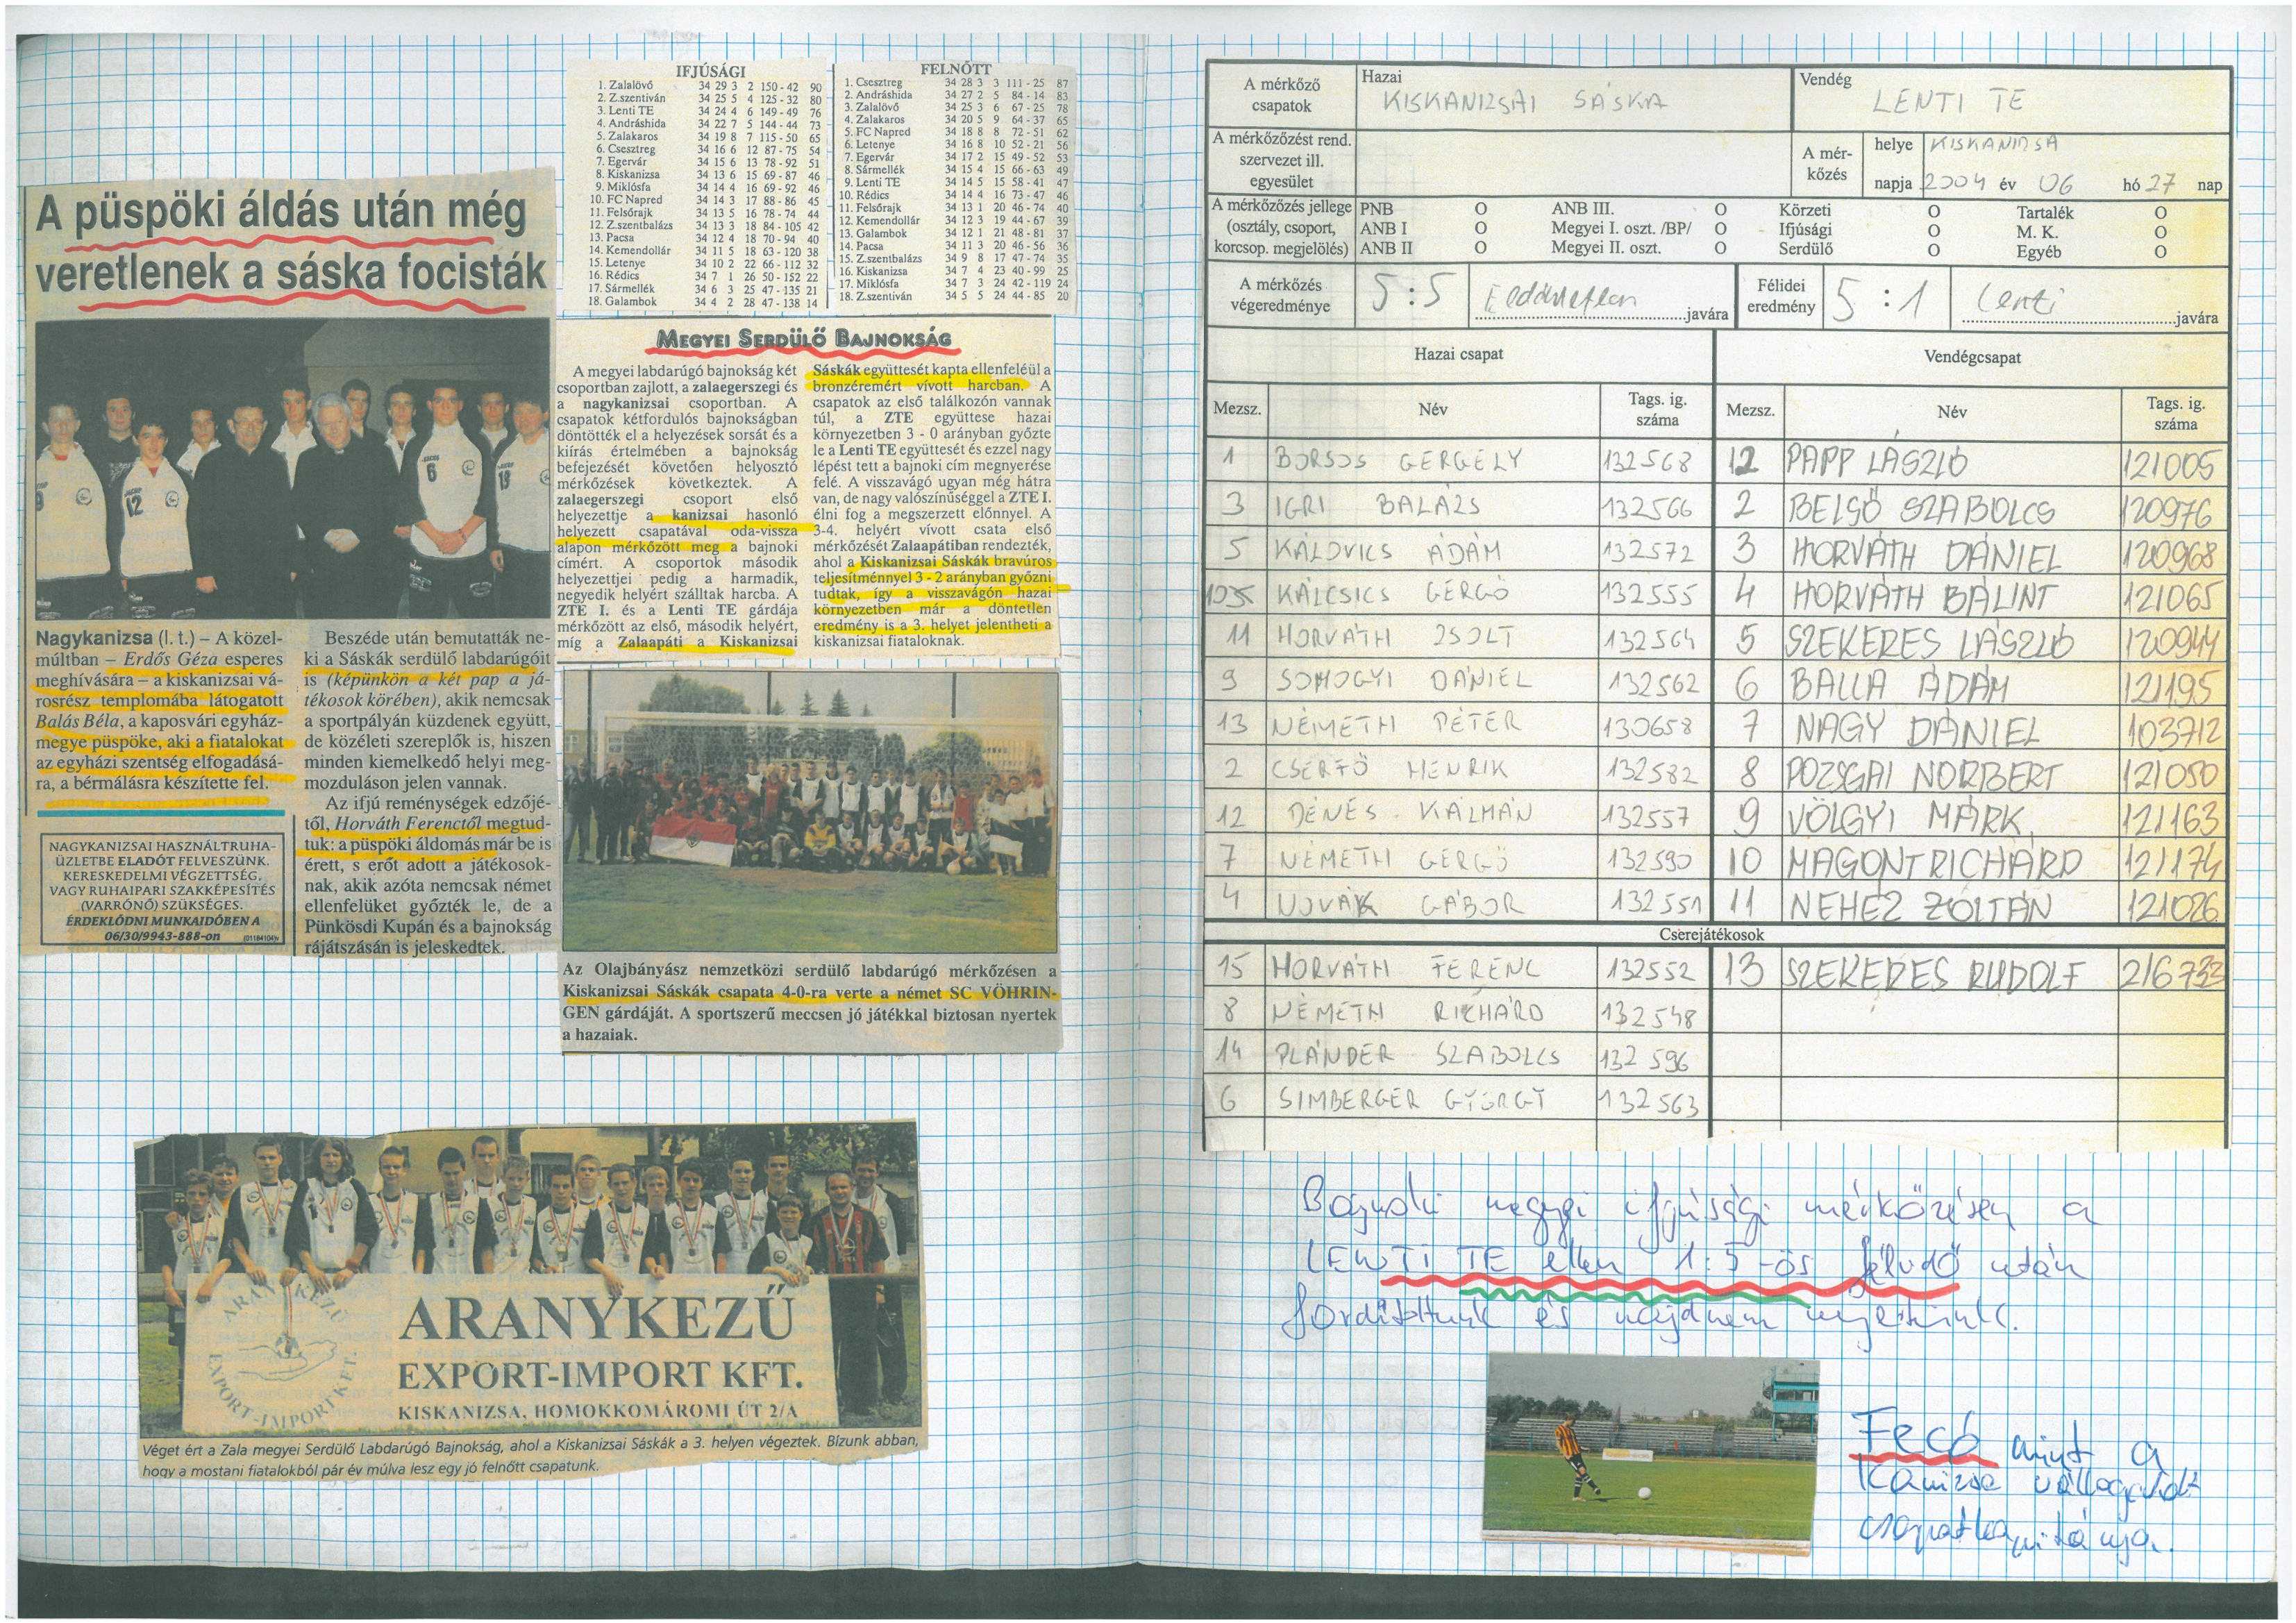 A püspöki áldás után még
veretlenek a sáska focisták
Nagykanizsa (l. t.) – A közel-
múltban – Erdős Géza esperes
meghívására – a kiskanizsai vá-
rosrész templomába látogatott
Balás Béla, a kaposvári egyház-
megye püspöke, aki a fiatalokat
az egyházi szentség elfogadásá-
ra, a bérmálásra készítette fel.
Beszéde után bemutatták ne-
ki a Sáskák serdülő labdarúgóit
is (képünkön a két pap a já-
tékosok körében), akik nemcsak
a sportpályán küzdenek együtt,
de közéleti szereplők is, hiszen
minden kiemelkedő helyi meg-
mozduláson jelen vannak.
Az ifjú reménységek edzőjé-
től, Horváth Ferenctől megtud-
tuk: a püspöki áldomás már be is
érett, s erőt adott a játékosok-
nak, akik azóta nemcsak német
ellenfelüket győzték le, de a
Pünkösdi Kupán és a bajnokság
rájátszásán is jeleskedtek.
NAGYKANIZSAI HASZNÁLTRUHA-
ÜZLETBE ELADÓT FELVESZÜNK.
KERESKEDELMI VÉGZETTSÉG,
VAGY RUHAIPARI SZAKKÉPESÍTÉS
(VARRÓNŐ) SZÜKSÉGES.
ÉRDEKLŐDNI MUNKAIDŐBEN A
06/30/9943-888-on
IFJÚSÁGI
1. Zalalövő 34 29 3 2 150 - 42 90
2. Z.szentiván 34 25 5 4 125 - 32 80
3. Lenti TE 34 24 4 6 149 - 49 76
4. Andráshida 34 22 7 5 144 - 44 73
5. Zalakaros 34 19 8 7 115 - 50 65
6. Csesztreg 34 16 6 12 87 - 75 54
7. Egervár 34 15 6 13 78 - 92 51
8. Kiskanizsa 34 13 6 15 69 - 87 46
9. Miklósfa 34 14 4 16 69 - 92 46
10. FC Napred 34 14 3 17 88 - 86 45
11. Felsőrajk 34 13 5 16 78 - 74 44
12. Z.szentbalázs 34 13 3 18 84 - 105 42
13. Pacsa 34 12 4 18 70 - 94 40
14. Kemendollár 34 11 5 18 63 - 120 38
15. Letenye 34 10 2 22 66 - 112 32
16. Rédics 34 7 1 26 50 - 152 22
17. Sármellék 34 6 3 25 47 - 135 21
18. Galambok 34 4 2 28 47 - 138 14
FELNŐTT
1. Csesztreg 34 28 3 3 111 - 25 87
2. Andráshida 34 27 2 5 84 - 14 83
3. Zalalövő 34 25 3 6 67 - 25 78
4. Zalakaros 34 20 5 9 64 - 37 65
5. FC Napred 34 18 8 8 72 - 51 62
6. Letenye 34 16 8 10 52 - 21 56
7. Egervár 34 17 2 15 49 - 52 53
8. Sármellék 34 15 4 15 66 - 63 49
9. Lenti TE 34 14 5 15 58 - 41 47
10. Rédics 34 14 4 16 73 - 47 46
11. Felsőrajk 34 13 1 20 46 - 74 40
12. Kemendollár 34 12 3 19 44 - 67 39
13. Galambok 34 12 1 21 48 - 81 37
14. Pacsa 34 11 3 20 46 - 56 36
15. Z.szentbalázs 34 9 8 17 47 - 74 35
16. Kiskanizsa 34 7 4 23 40 - 99 25
17. Miklósfa 34 7 3 24 42 - 119 24
18. Z.szentiván 34 5 5 24 44 - 85 20
MEGYEI SERDÜLŐ BAJNOKSÁG
A megyei labdarúgó bajnokság két
csoportban zajlott, a zalaegerszegi és
a nagykanizsai csoportban. A
csapatok kétfordulós bajnokságban
döntötték el a helyezések sorsát és a
kiírás értelmében a bajnokság
befejezését követően helyosztó
mérkőzések következtek. A
zalaegerszegi csoport első
helyezettje a kanizsai hasonló
helyezett csapatával oda-vissza
alapon mérkőzött meg a bajnoki
címért. A csoportok második
helyezettjei pedig a harmadik,
negyedik helyért szálltak harcba. A
ZTE I. és a Lenti TE gárdája
mérkőzött az első, második helyért,
míg a Zalaapáti a Kiskanizsai
Sáskák együttesét kapta ellenfeléül a
bronzéremért vívott harcban. A
csapatok az első találkozón vannak
túl, a ZTE együttese hazai
környezetben 3 - 0 arányban győzte
le a Lenti TE együttesét és ezzel nagy
lépést tett a bajnoki cím megnyerése
felé. A visszavágó ugyan még hátra
van, de nagy valószínűséggel a ZTE I.
élni fog a megszerzett előnnyel. A
3-4. helyért vívott csata első
mérkőzését Zalaapátiban rendezték,
ahol a Kiskanizsai Sáskák bravúros
teljesítménnyel 3 - 2 arányban győzni
tudtak, így a visszavágón hazai
környezetben már a döntetlen
eredmény is a 3. helyet jelentheti a
kiskanizsai fiataloknak.
Az Olajbányász nemzetközi serdülő labdarúgó mérkőzésen a
Kiskanizsai Sáskák csapata 4-0-ra verte a német SC VÖHRIN-
GEN gárdáját. A sportszerű meccsen jó játékkal biztosan nyertek
a hazaiak.
ARANYKEZŰ
EXPORT-IMPORT KFT.
ARANYKEZŰ
EXPORT-IMPORT KFT.
KISKANIZSA, HOMOKKOMÁROMI ÚT 2/A
Véget ért a Zala megyei Serdülő Labdarúgó Bajnokság, ahol a Kiskanizsai Sáskák a 3. helyen végeztek. Bízunk abban,
hogy a mostani fiatalokból pár év múlva lesz egy jó felnőtt csapatunk.
A mérkőző csapatok Hazai KISKANIZSAI SÁSKA Vendég LENTI TE
A mérkőzőzést rend. szervezet ill. egyesület A mér-kőzés helye KISKANIZSA
napja 2004 év 06 hó 27 nap
A mérkőzőzés jellege PNB O ANB III. O Körzeti O Tartalék O
(osztály, csoport, ANB I O Megyei I. oszt. /BP/ O Ifjúsági O M. K. O
korcsop. megjelölés) ANB II O Megyei II. oszt. O Serdülő O Egyéb O
A mérkőzés végeredménye 5 : 5 Eldöntetlen javára Félidei eredmény 5 : 1 Lenti javára
Hazai csapat Vendégcsapat
Mezsz. Név Tags. ig. száma Mezsz. Név Tags. ig. száma
1 BORSOS GERGELY 132568 12 PAPP LÁSZLÓ 121005
3 IGRI BALÁZS 132566 2 BELSŐ SZABOLCS 120976
5 KÁLOVICS ÁDÁM 132572 3 HORVÁTH DÁNIEL 120968
KÁLCSICS GERGŐ 132555 4 HORVÁTH BÁLINT 121065
11 HORVÁTH ZSOLT 132564 5 SZEKERES LÁSZLÓ 120944
9 SOMOGYI DÁNIEL 132562 6 BALLA ÁDÁM 121195
13 NÉMETH PÉTER 130658 7 NAGY DÁNIEL 103712
2 CSERFŐ HENRIK 132582 8 POZSGAI NORBERT 121050
12 DÉNES KÁLMÁN 132557 9 VÖLGYI MÁRK 121163
7 NÉMETH GERGŐ 132590 10 MAGONT RICHÁRD 121174
4 NOVÁK GÁBOR 132551 11 NEHÉZ ZOLTÁN 121026
Cserejátékosok
15 HORVÁTH FERENC 132552 13 SZEKERES RUDOLF 216733
8 NÉMETH RICHÁRD 132548
14 PLÁNDER SZABOLCS 132596
6 SIMBERGER GYÖRGY 132563
Bajnoki megyei ifjúsági mérkőzésen a
LENTI TE ellen 1:5-ös félidő után
fordítottunk és majdnem nyertünk.
Fecó mint a
Kanizsa válogatott
csapatkapitánya.